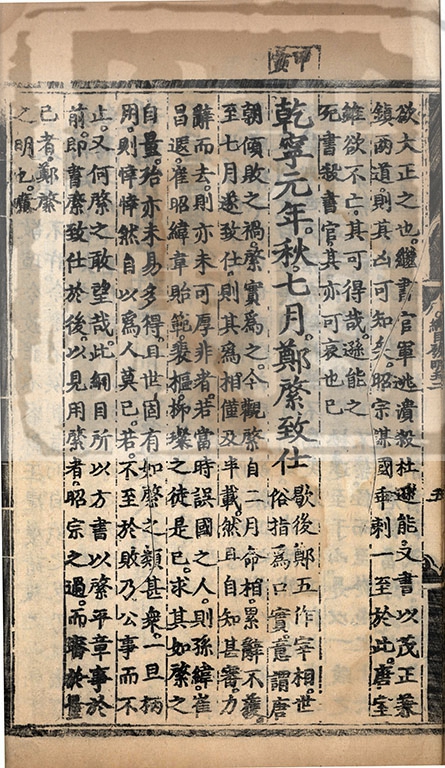 甲寅
欲大正之也。繼書官軍逃潰殺杜遜能。又書以茂正兼
鎮兩道。則其凶可知矣。昭宗謀國乖剌一至於此。唐室
雖欲不亡。其可得哉。遜能之
死書殺書官。其亦可哀也已
乾寧元年。秋。七月。鄭綮致仕
歇後鄭五作宰相。世
俗指為口實。意謂唐
朝傾敗之禍。綮實為之。今觀綮自二月命相。累辭不獲。
至七月遂致仕。則其為相僅及半載。然且自知甚審。力
辭而去。則亦未可厚非者。若當時誤國之人。則孫緯崔
昌遐。崔昭緯韋貽範。裴樞柳璨之徒是已。求其如綮之
自量。殆亦未易多得。且世固有如綮之類甚衆。一旦柄
用。則悻悻然自以為人莫已若。不至於敗乃公事而不
止。又何綮之敢望哉。此綱目所以方書以綮平章事於
前。即書綮致仕於後。以見用綮者。昭宗之過。而審於量
已者。鄭綮
之明也。
五